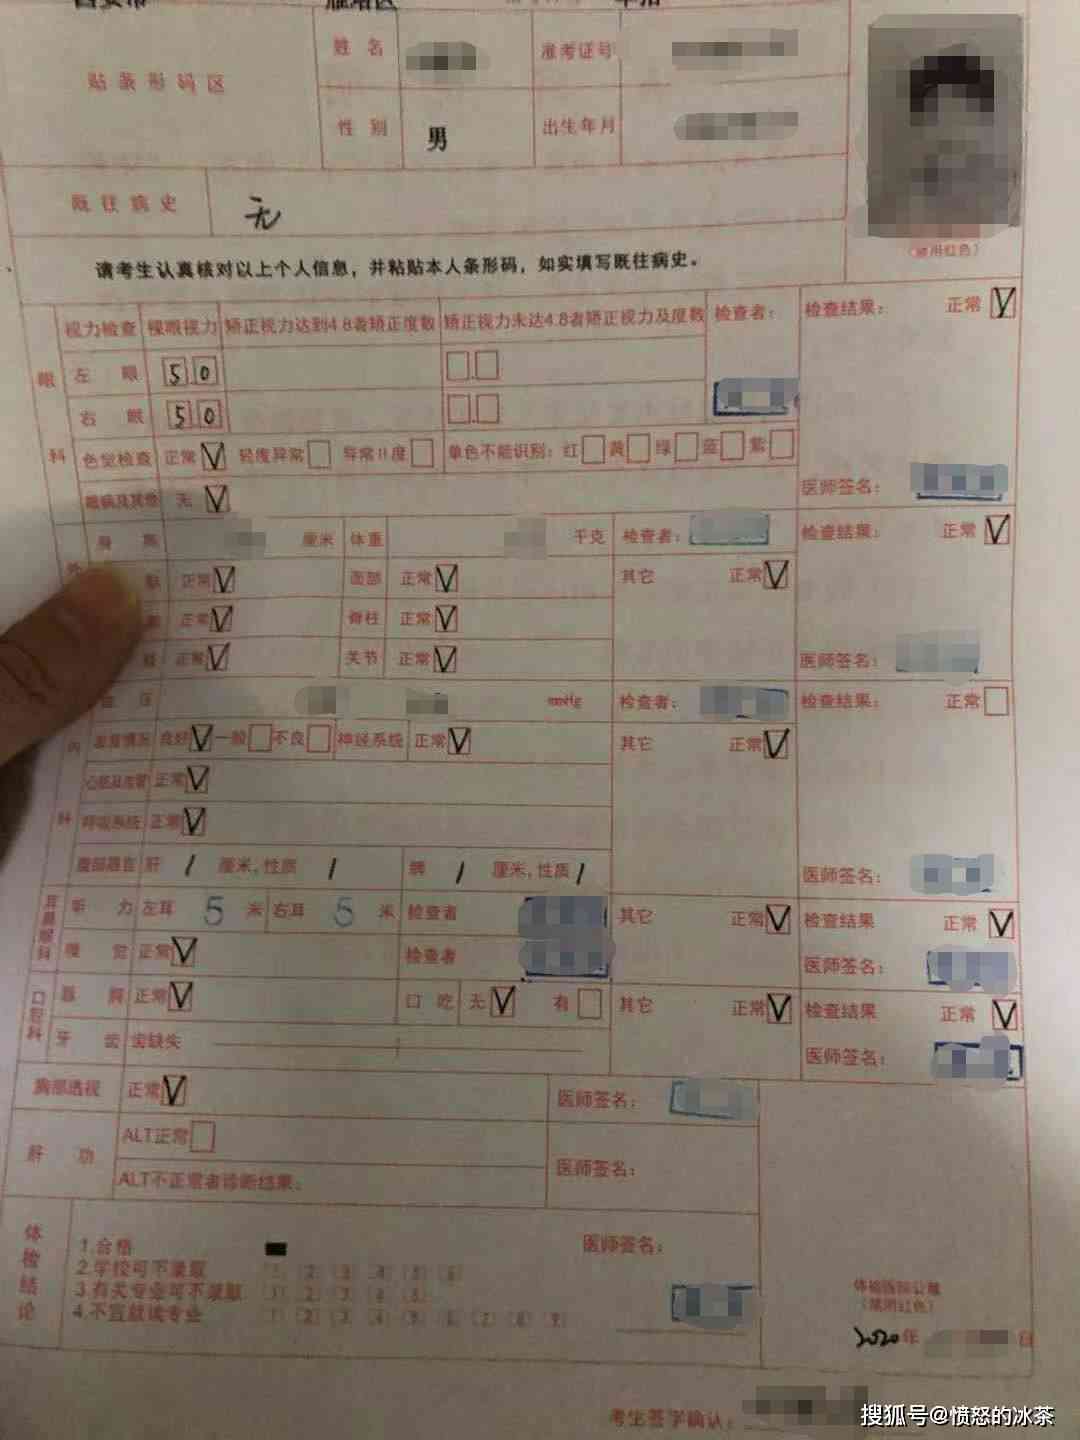 贴条形码区
姓名
准考证号
性别 男 出生年月
既往病史 无
(禁用红色)
请考生认真核对以上个人信息，并粘贴本人条形码，如实填写既往病史。
眼科
视力检查 裸眼视力 矫正视力达到4.8者矫正度数 矫正视力未达4.8者矫正视力及度数 检查者： 检查结果： 正常 V
左眼 5.0
右眼 5.0
色觉检查 正常 V 轻度异常 异常II度 单色不能识别：红 黄 绿 蓝 紫
眼病及其他 无 V
医师签名：
身高 厘米 体重 千克 检查者： 检查结果： 正常 V
正常 V 面部 正常 V 其它 正常 V
正常 V 脊柱 正常 V
正常 V 关节 正常 V
医师签名：
mmHg 检查者： 检查结果： 正常
内科
发育情况 良好 V 一般 不良 神经系统 正常 V 其它 正常 V
心脏及血管 正常 V
呼吸系统 正常 V
腹部器官 肝 / 厘米，性质 / 脾 / 厘米，性质 /
医师签名：
耳鼻喉科
听力 左耳 5 米 右耳 5 米 检查者 其它 正常 V 检查结果 正常 V
嗅觉 正常 V 检查者 医师签名：
口腔科
唇腭 正常 V 口吃 无 V 有 其它 正常 V 检查结果 正常 V
牙齿 齿缺失 医师签名：
胸部透视 正常 V 医师签名：
肝功
ALT正常
ALT不正常者诊断结果：
医师签名：
体检结论
1.合格 医师签名：
2.学校可不录取 1 2 3 4 5 6
3.有关专业可不录取 1 2 3 4 5
4.不宜就读专业 1 2 3 4 5 6 7 8 9
体检医院公章
(禁用红色)
2020年 日
考生签字确认：
搜狐号@愤怒的冰茶